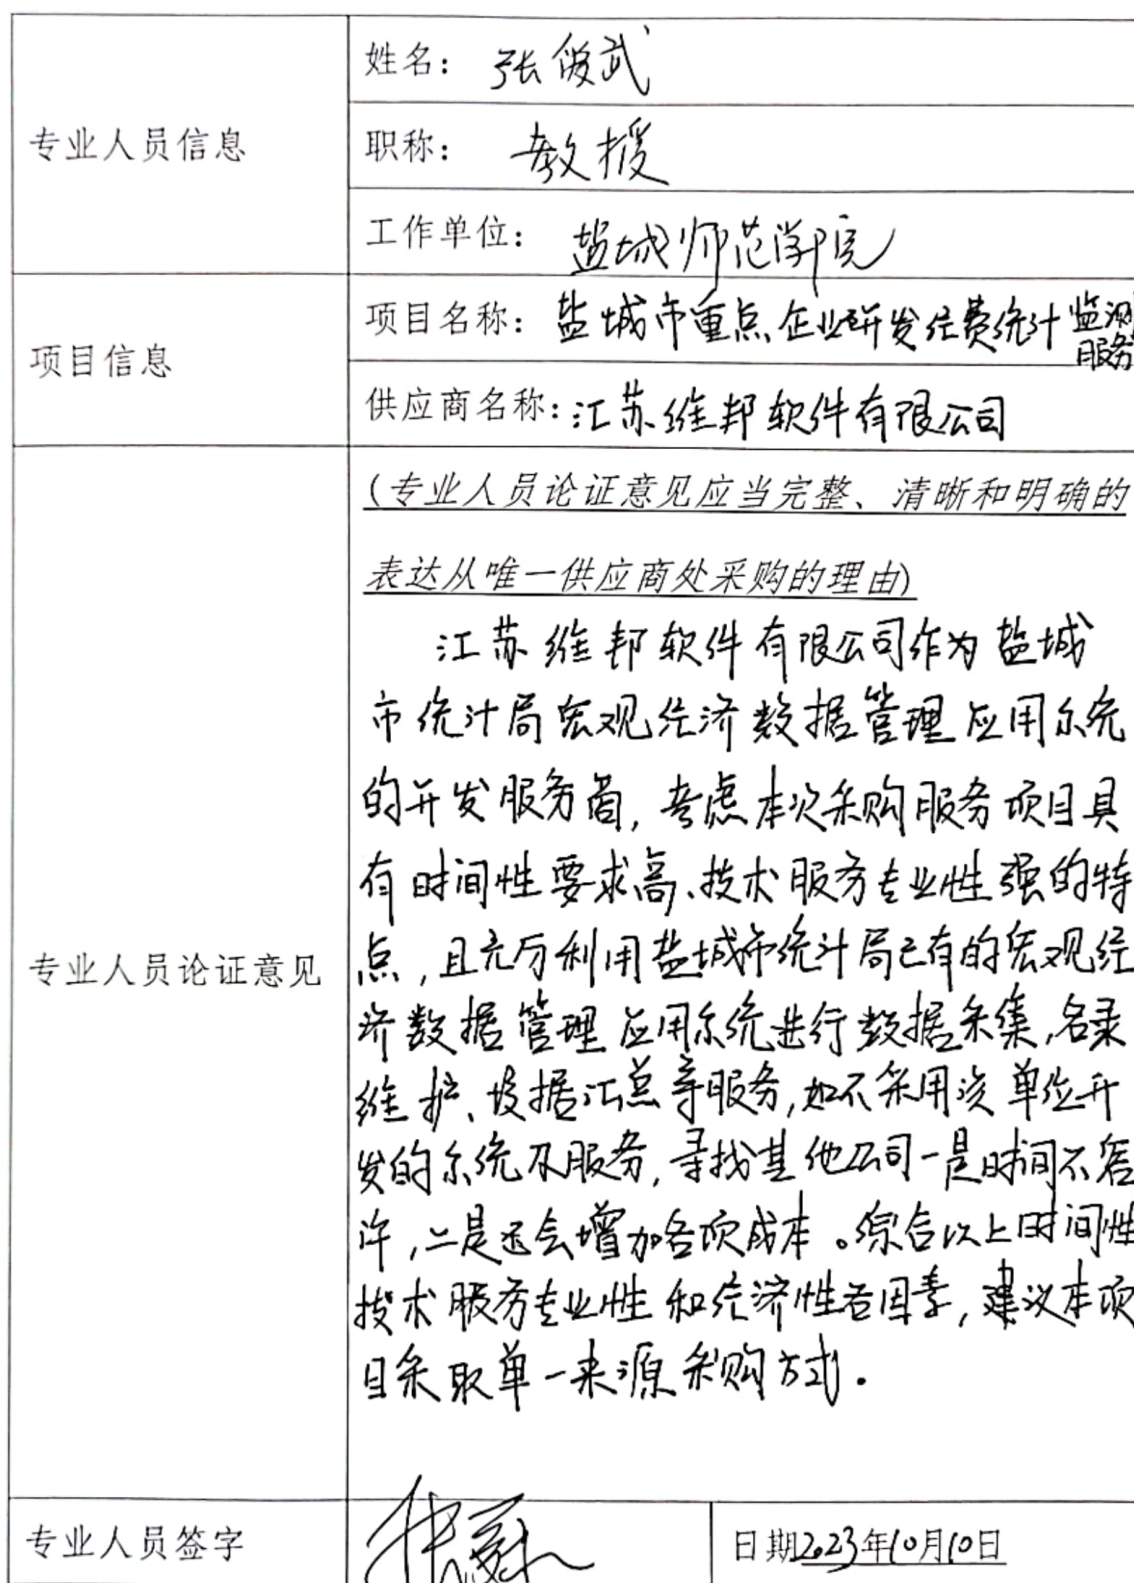 专业人员信息
姓名：张俊武
职称：教授
工作单位：盐城师范学院
项目信息
项目名称：盐城市重点企业研发经费统计监测
服务
供应商名称：江苏维邦软件有限公司
专业人员论证意见
(专业人员论证意见应当完整、清晰和明确的
表达从唯一供应商处采购的理由)
江苏维邦软件有限公司作为盐城
市统计局宏观经济数据管理应用系统
的开发服务商，考虑本次采购服务项目具
有时间性要求高、技术服务专业性强的特
点，且充分利用盐城市统计局已有的宏观经
济数据管理应用系统进行数据采集，名录
维护、数据汇总等服务，如不采用该单位开
发的系统及服务，寻找其他公司一是时间不容
许，二是还会增加各项成本。综合以上时间性
技术服务专业性和经济性各因素，建议本项
目采取单一来源采购方式。
专业人员签字
日期2023年10月10日